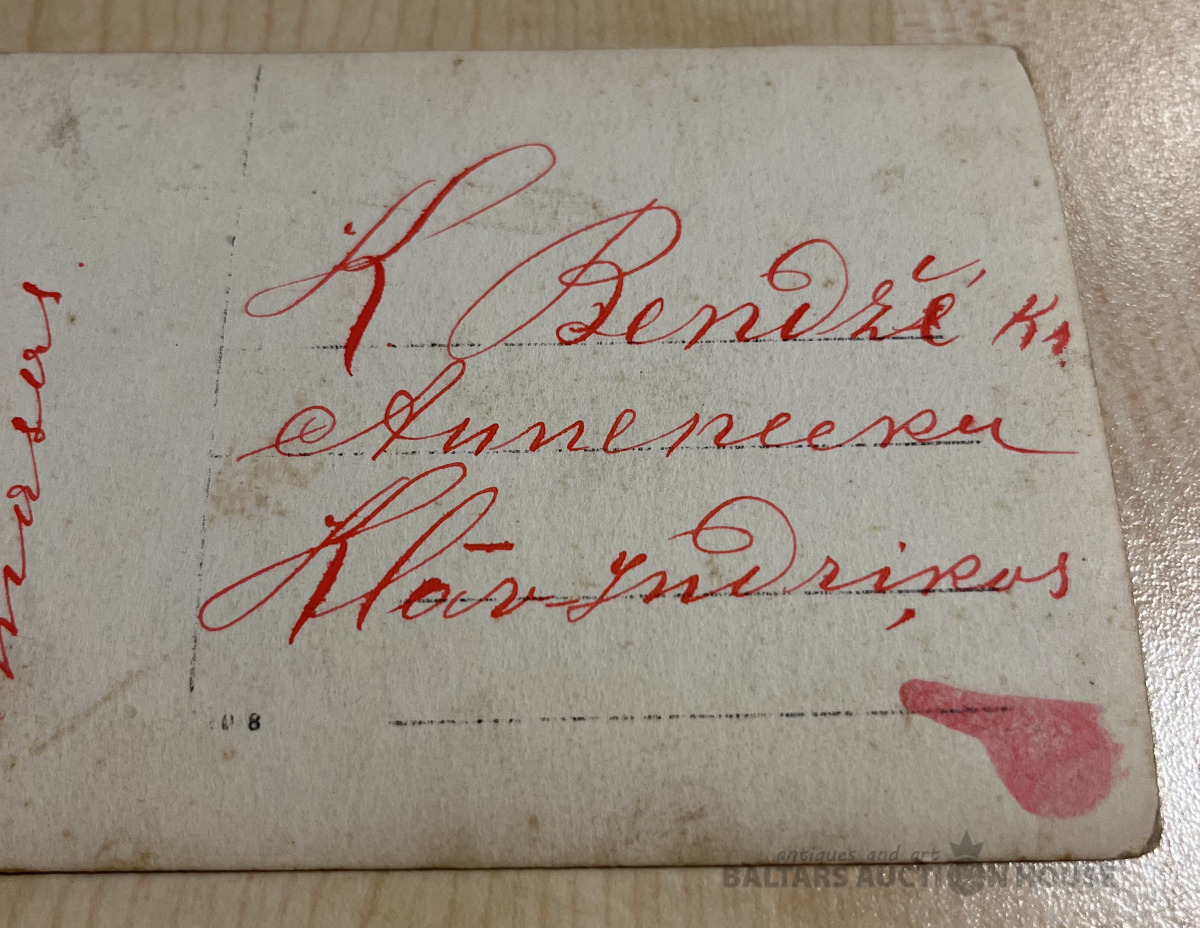 K Bendžé K1
Annepeeku
Klāv-Yndriķos
8
antiques and art
BALTARS AUCTION HOUSE